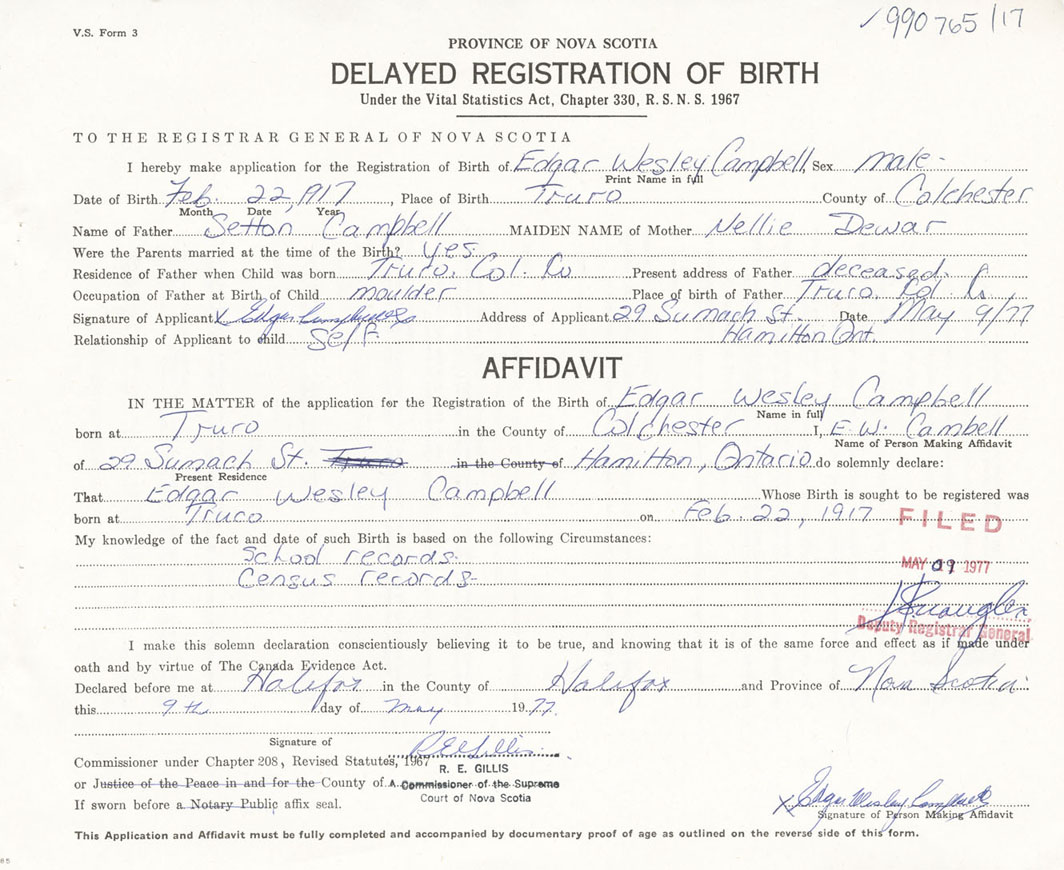 V.S. Form 3
990765/17
PROVINCE OF NOVA SCOTIA
DELAYED REGISTRATION OF BIRTH
Under the Vital Statistics Act, Chapter 330, R.S.N.S. 1967
TO THE REGISTRAR GENERAL OF NOVA SCOTIA
I hereby make application for the Registration of Birth of Edgar Wesley Campbell, Sex male-
Print Name in full
Date of Birth Feb. 22, 1917, Place of Birth Truro County of Colchester
Month Date Year
Name of Father Setton Campbell MAIDEN NAME of Mother Nellie Dewar
Were the Parents married at the time of the Birth? yes.
Residence of Father when Child was born Truro, Col. Co Present address of Father deceased.
Occupation of Father at Birth of Child moulder Place of birth of Father Truro. Col. Co.
Signature of Applicant X Edgar Campbell Address of Applicant 29 Sumach St. Date May 9/77
Relationship of Applicant to child Self Hamilton Ont.
AFFIDAVIT
IN THE MATTER of the application for the Registration of the Birth of Edgar Wesley Campbell
Name in full
born at Truro in the County of Colchester I, E.W. Cambell
Name of Person Making Affidavit
of 29 Sumach St. Truro in the County of Hamilton, Ontario do solemnly declare:
Present Residence
That Edgar Wesley Campbell Whose Birth is sought to be registered was
born at Truro on Feb. 22, 1917 FILED
My knowledge of the fact and date of such Birth is based on the following Circumstances:
School records.
Census records- MAY 09 1977
Deputy Registrar General
I make this solemn declaration conscientiously believing it to be true, and knowing that it is of the same force and effect as if made under
oath and by virtue of The Canada Evidence Act.
Declared before me at Halifax in the County of Halifax and Province of Nova Scotia
this 9th day of may 1977.
Signature of R E Gillis
Commissioner under Chapter 208, Revised Statutes, 1967
R. E. GILLIS
or Justice of the Peace in and for the County of A Commissioner of the Supreme
Court of Nova Scotia
If sworn before a Notary Public affix seal.
X Edgar Wesley Campbell
Signature of Person Making Affidavit
This Application and Affidavit must be fully completed and accompanied by documentary proof of age as outlined on the reverse side of this form.